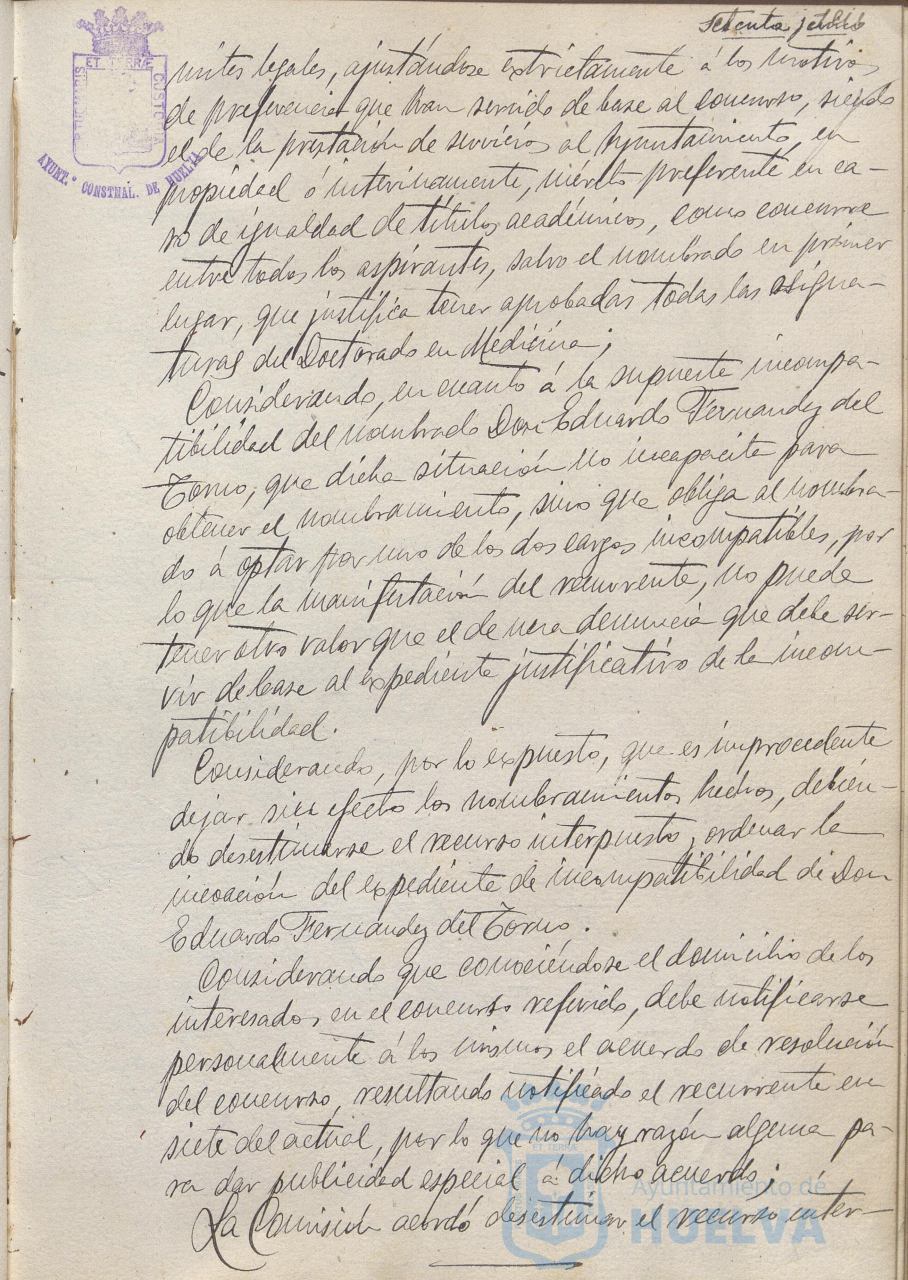 Setenta y ocho
ET TERRÆ
CUSTODIA
PORTUS MARIS
AYUNT.º CONSTNAL. DE HUELVA
mites legales, ajustándose extrictamente á los motivos
de preferencia que han servido de base al concurso, siendo
el de la prestación de servicios al Ayuntamiento, en
propiedad ó interinamente, mérito preferente, en ca-
so de igualdad de títulos académicos, como concurre
entre todos los aspirantes, salvo el nombrado en primer
lugar, que justifica tener aprobadas todas las asigna-
turas del Doctorado en Medicina;
Considerando, en cuanto á la supuesta incompa-
tibilidad del nombrado Don Eduardo Fernandez del
Torno, que dicha situación no incapacita para
obtener el nombramiento, sino que obliga al nombra-
do á optar por uno de los dos cargos incompatibles, por
lo que la manifestación del recurrente, no puede
tener otro valor que el de una denuncia que debe ser-
vir de base al expediente justificativo de la incom-
patibilidad.
Considerando, por lo expuesto, que es improcedente
dejar sin efecto los nombramientos hechos, debién-
do desestimarse el recurso interpuesto y ordenar la
incoación del expediente de incompatibilidad de Don
Eduardo Fernandez del Torno.
Considerando que conociéndose el domicilio de los
interesados en el concurso referido, debe notificarse
personalmente á los mismos el acuerdo de resolución
del concurso, resultando notificado el recurrente en
siete del actual, por lo que no hay razón alguna pa-
ra dar publicidad especial á dicho acuerdo;
La Comisión acordó desestimar el recurso inter-
ET TERRÆ
Ayuntamiento de
HUELVA